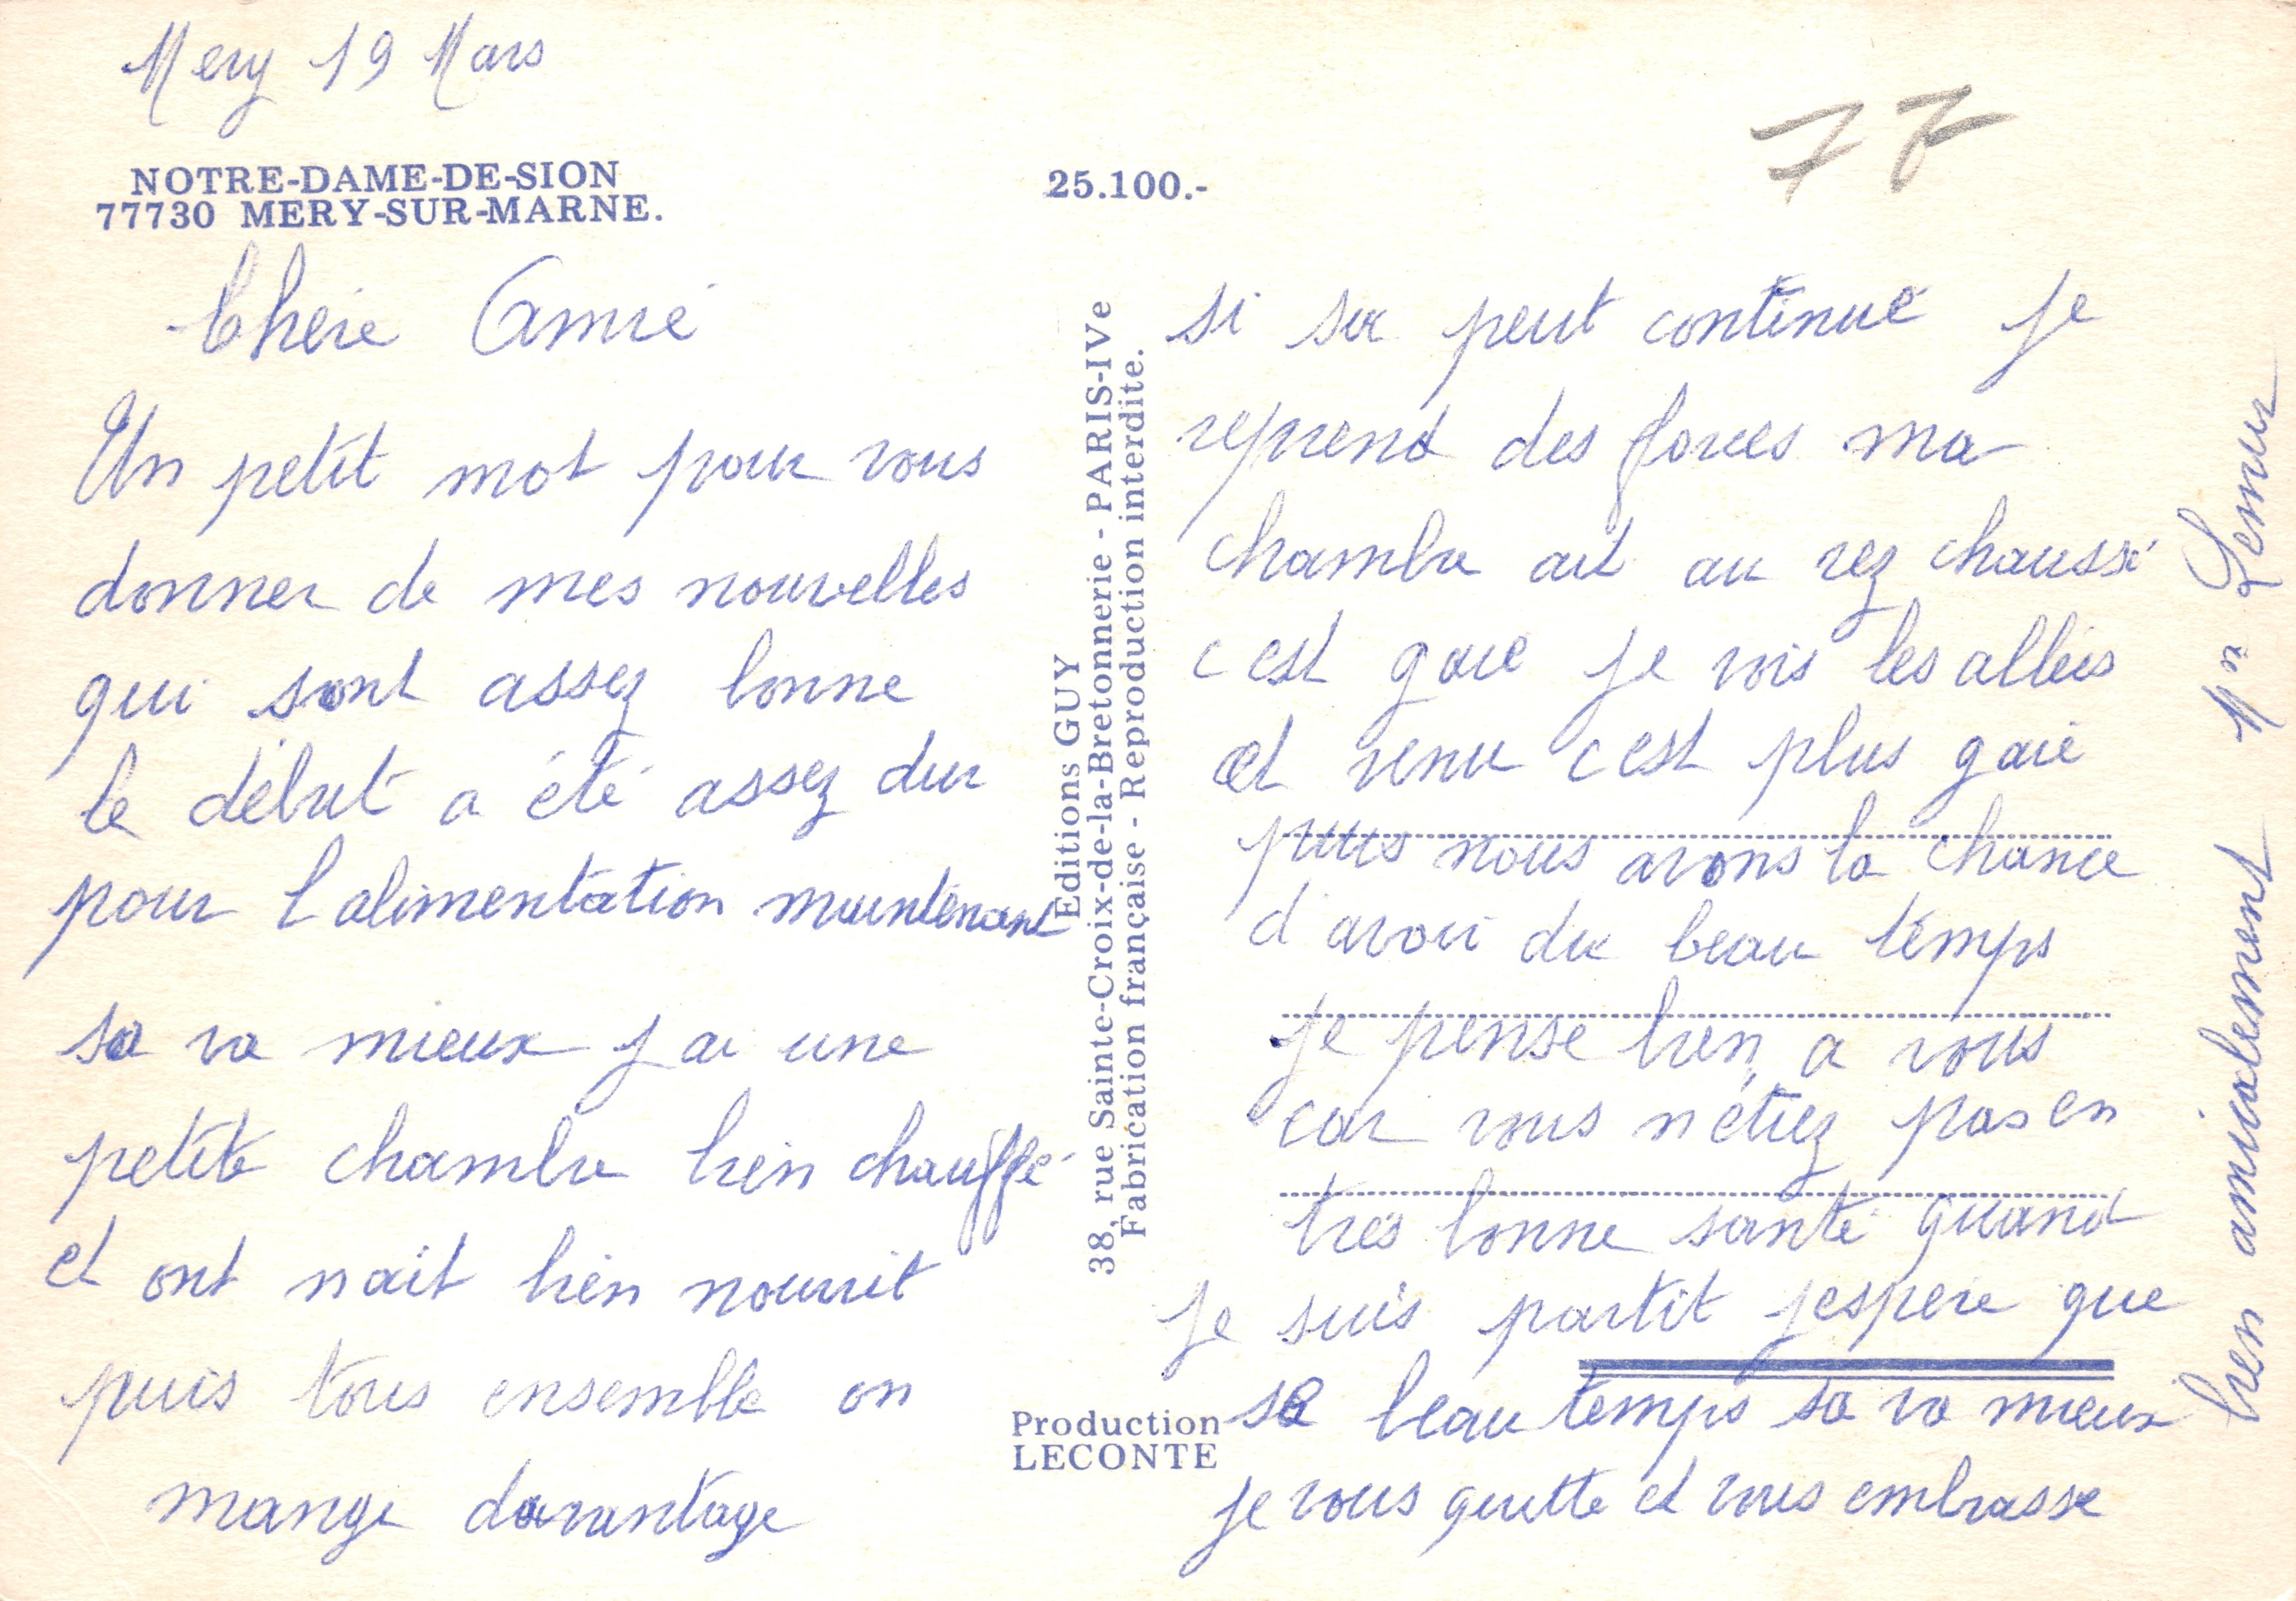 Mery 19 Mars
NOTRE-DAME-DE-SION
77730 MERY-SUR-MARNE.
25.100.-
77
Chére Amié
Un petit mot pour vous
donner de mes nouvelles
qui sont assez bonne
le début a été assez dur
pour l alimentation maintenant
sa va mieux j ai une
petite chambre bien chauffé
et ont nait bien nourrit
puis tous ensemble on
mange davantage
Editions GUY
38, rue Sainte-Croix-de-la-Bretonnerie - PARIS-IVe
Fabrication française - Reproduction interdite.
Production
LECONTE
si sa peut continué je
reprend des forces ma
chambre ait au rez chaussé
c est gaie je vois les allées
et venu c est plus gaie
puis nous avons la chance
d avoir du beau temps
je pense bien a vous
car vous n étiez pas en
tres bonne santé quand
je suis partit j espere que
se beau temps sa va mieux
je vous quitte et vous embrasse
bien amicalement Mme